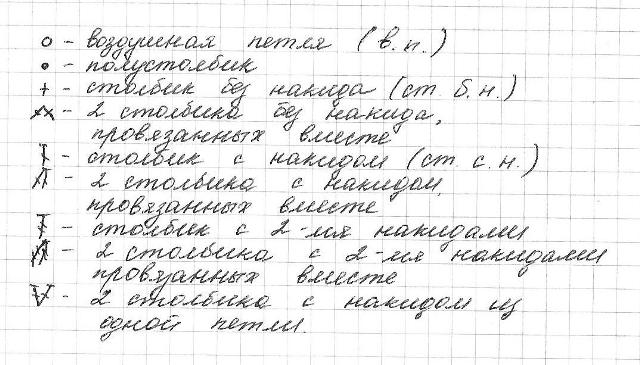 о - воздушная петля (в.п.)
• - полустолбик
+ - столбик без накида (ст. б.н.)
- 2 столбика без накида,
провязанных вместе
- столбик с накидом (ст. с.н.)
- 2 столбика с накидом,
провязанных вместе
- столбик с 2-мя накидами
- 2 столбика с 2-мя накидами
провязанных вместе
- 2 столбика с накидом из
одной петли.